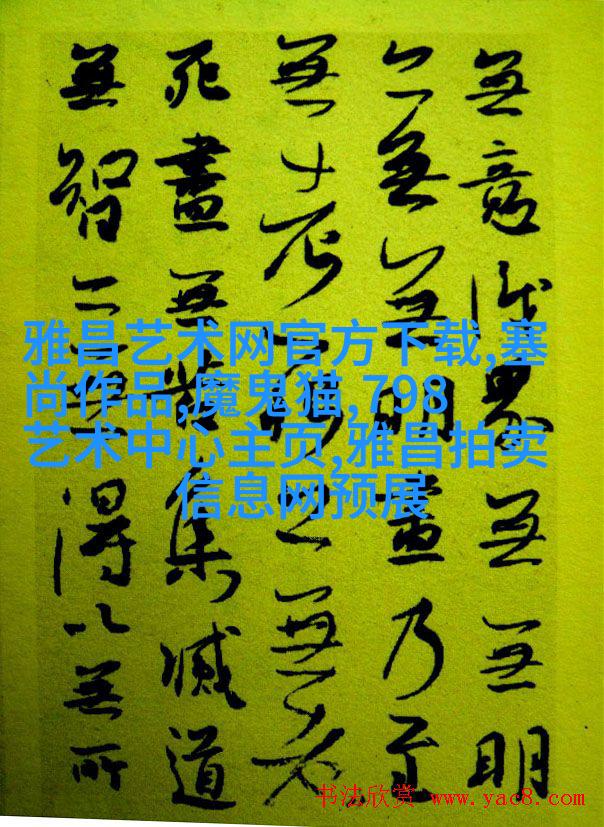 無意識界無無明
亦無無明盡乃至
無老死亦無老
死盡無苦集滅道
無智亦無得以無所
雅昌艺术网官方下载,塞
尚作品,魔鬼猫,798
艺术中心主页,雅昌拍卖
信息网预展
书法欣赏 www.yac8.com